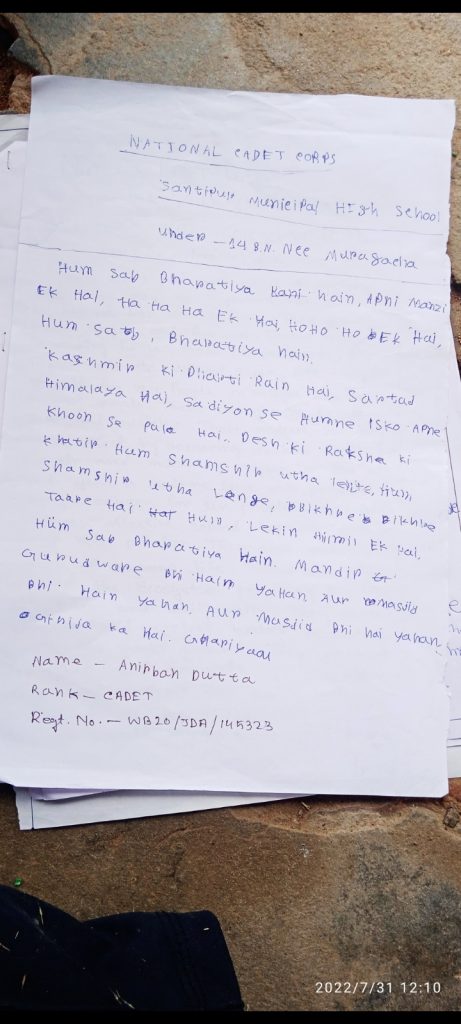 NATIONAL CADET CORPS
Santipur Municipal High School
under - 14 B.N. Ncc Muragacha
Hum Sab Bharatiya hain, Apni Manzi
Ek Hai, Ha Ha Ha Ek Hai, HoHo Ho Ek Hai,
Hum Sab, Bharatiya hain.
Kashmir Ki Dharti Rain Hai, Sartad
Himalaya Hai, Sadiyon se Humne Isko Apne
Khoon Se Pala Hai. Desh ki Raksha ki
Khatir Hum Shamshir utha lente, Hum
Shamshir utha Lenge, Bikhre Bikhre
Taare Hai Hum, Lekin Ek Hai.
Hum Sab Bharatiya Hain. Mandir
Gurudware Bhi Haim Yahan Aur masjid
Bhi Hain Yahan. Aur Masjid Bhi hai Yahan
ka Hai.
Name - Anirban Dutta
Rank - CADET
Regt. No. - WB20/JDA/145323
2022/7/31 12:10